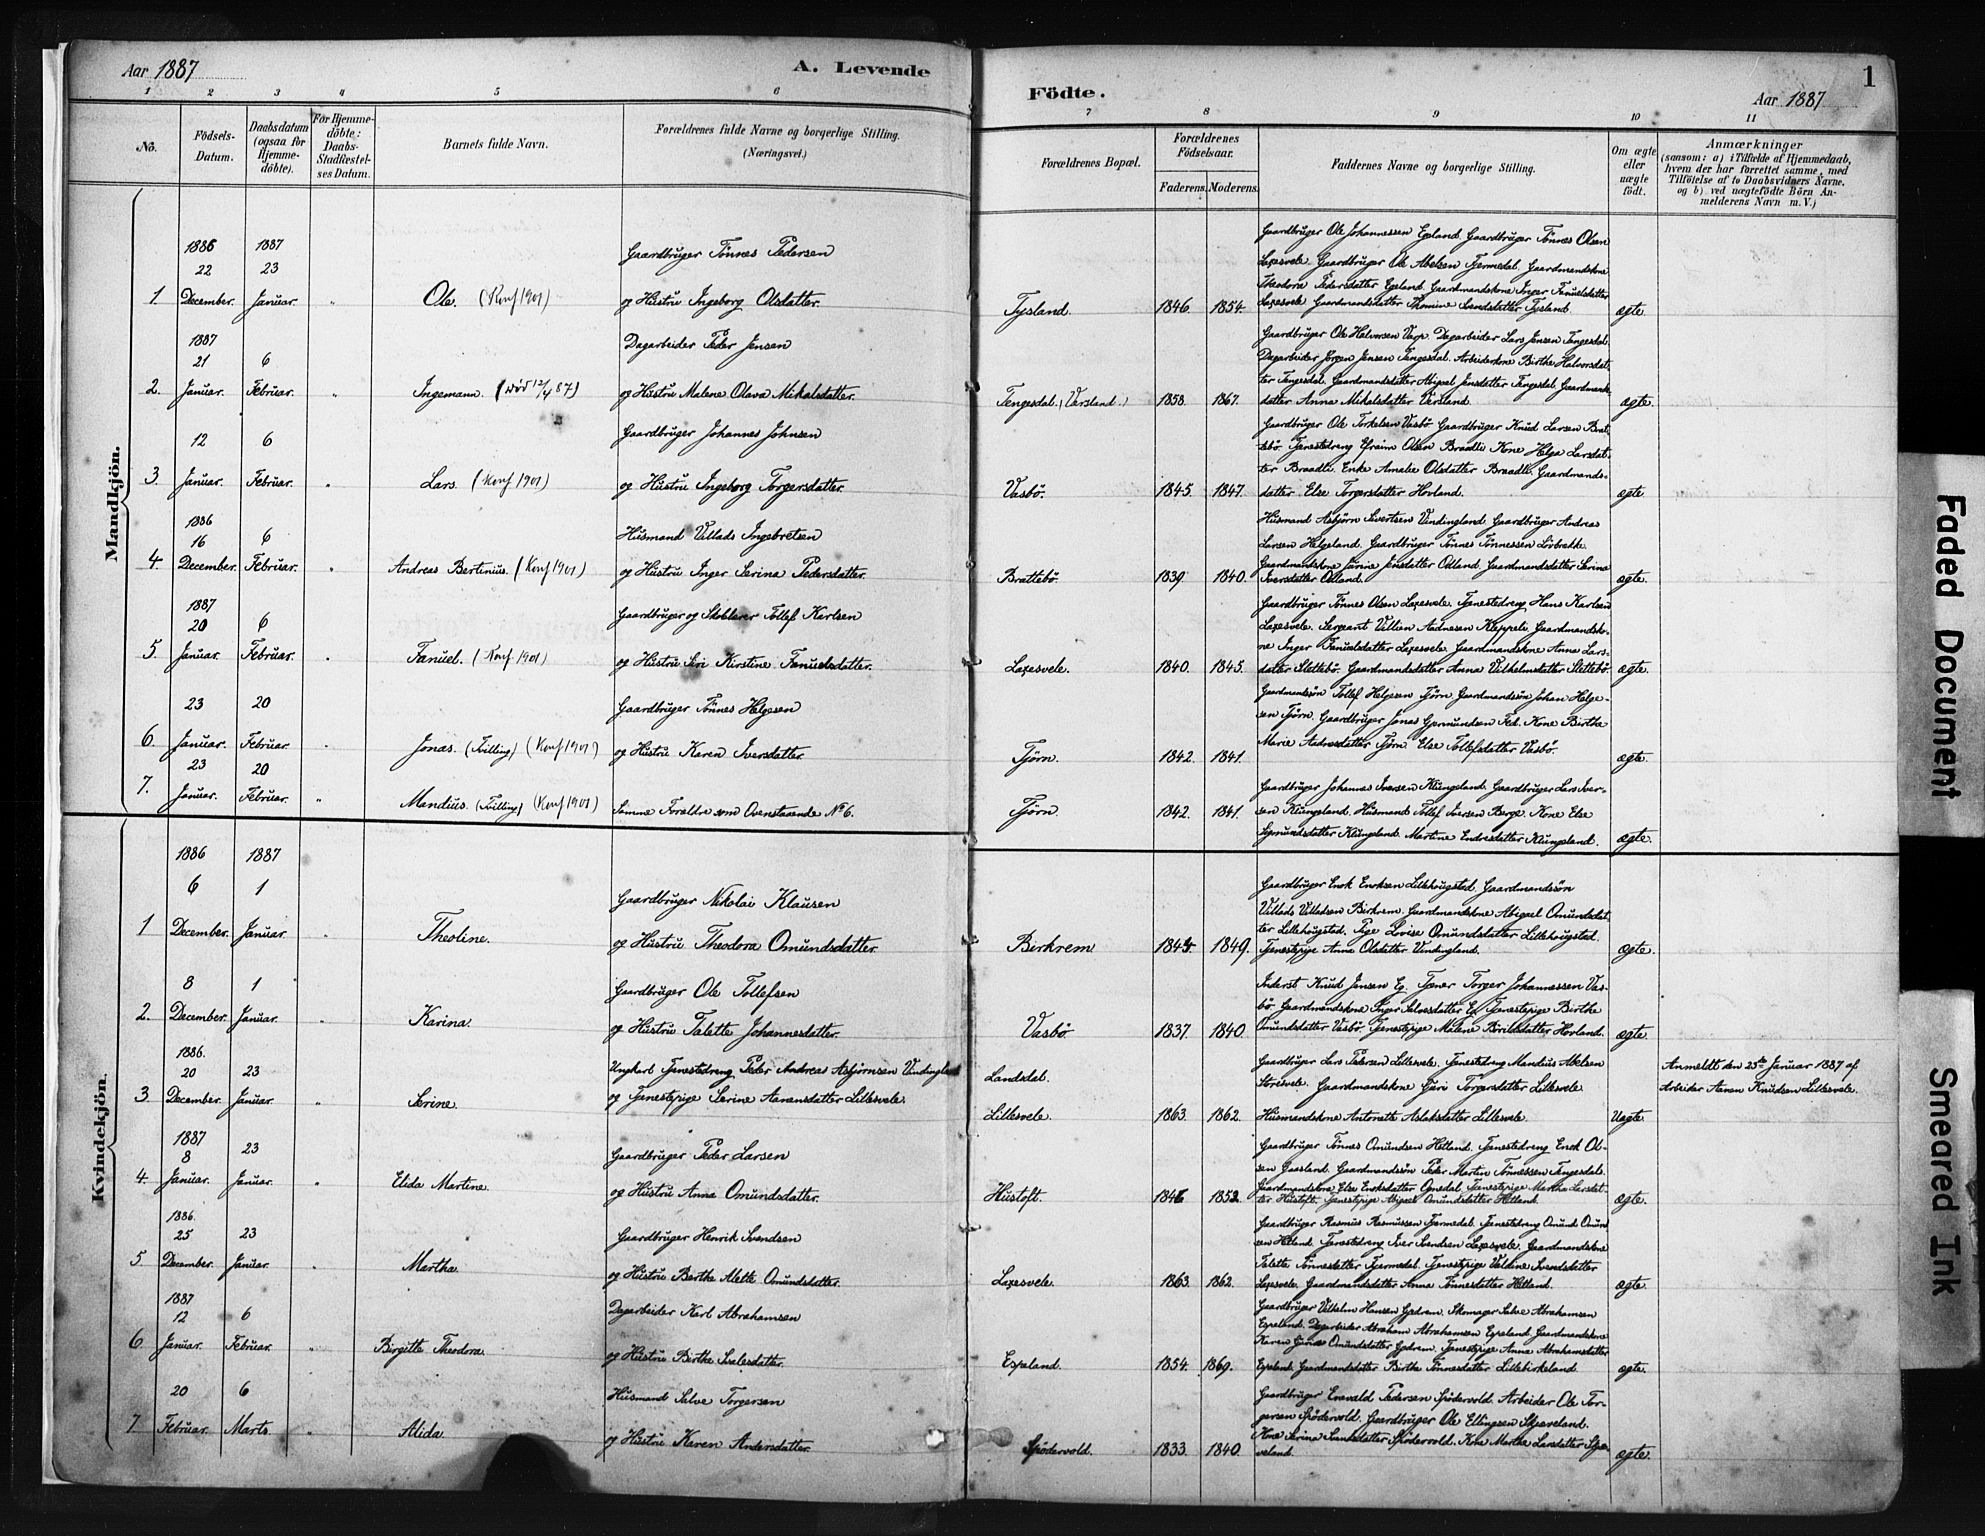 Aar 1887
A. Levende
Födte.
Aar 1887
1
1 2 3 4 5 6 7 8 9 10 11
No.
Födsels-Datum.
Daabsdatum (ogsaa for Hjemme-döbte).
For Hjemme-döbte: Daabs-Stadfæstel-ses Datum.
Barnets fulde Navn.
Forældrenes fulde Navne og borgerlige Stilling.
(Næringsvei.)
Forældrenes Bopæl.
Forældrenes Födselsaar.
Faderens. Moderens.
Faddernes Navne og borgerlige Stilling.
Om ægte eller uægte födt.
Anmærkninger
(saasom: a) i Tilfælde af Hjemmedaab,
hvem der har forrettet samme, med
Tilföielse af to Daabsvidners Navne,
og b) ved uægtefödte Börn An-
melderens Navn m. V.)
Mandkjön.
1886 1887
22 23
1 December. Januar. " Ole. (Konf 1901)
Gaardbruger Tönnes Pedersen
og Hustru Ingeborg Olsdatter.
Tysland. 1846. 1854.
Gaardbruger Ole Johannessen Egeland. Gaardbruger Tönnes Olsen
Laxesvele. Gaardbruger Ole Abelsen Tjermedal. Gaardmandskone
Theodore Pedersdatter Egeland. Gaardmandskone Inger Fanuelsdatter
Laxesvele. Gaardmandsdatter Thomine Svendsdatter Tysland.
ægte
1887
21 6
2. Januar. Februar. " Ingemann. (död 12/4 87)
Dagarbeider Peder Jensen
og Hustru Malene Olava Mikalsdatter.
Tengesdal. (Versland.) 1858. 1867.
Gaardbruger Ole Halvorsen Varp. Dagarbeider Lars Jensen Tengesdal.
Dagarbeider Jörgen Jensen Tengesdal. Arbeiderkone Birthe Halvorsdat-
ter Tengesdal. Gaardmandsdatter Abigael Jensdatter Tengesdal. Gaardmands-
datter Anna Mikalsdatter Versland.
ægte.
12 6
3. Januar. Februar. " Lars. (Konf 1901)
Gaardbruger Johannes Johnsen
og Hustru Ingeborg Torgersdatter.
Vasbö. 1845. 1847.
Gaardbruger Ole Torkelsen Vasbö. Gaardbruger Knud Larsen Brat-
tebö. Tjenestedreng Efraim Olsen Braadli. Kone Helga Larsdat-
ter Braadli. Enke Amalie Olsdatter Braadli. Gaardmands-
datter Else Torgersdatter Hovland.
ægte
1886
16 6
4. December. Februar. " Andreas Bertinius. (Konf 1901)
Husmand Villads Ingebretsen
og Hustru Inger Serina Pedersdatter.
Brattebö. 1839. 1840.
Husmand Asbjörn Sivertsen Vindingland. Gaardbruger Andreas
Larsen Helgeland. Gaardbruger Tönnes Tönnessen Lörbrekke.
Gaardmandskone Jensdatter Odland. Gaardmandsdatter Serina
Iversdatter Odland.
ægte.
1887
20 6
5. Januar. Februar. " Fanuel. (Konf 1901)
Gaardbruger og Skolelærer Tollef Karlsen
og Hustru Siri Kirstine Fanuelsdatter.
Laxesvele. 1840. 1845.
Gaardbruger Tönnes Olsen Laxesvele. Tjenestedreng Hans Karlsen
Laxesvele. Sergeant Villien Aadnesen Kleppeli. Gaardmandsko-
ne Inger Fanuelsdatter Laxesvele. Gaardmandskone Anna Lars-
datter Slettebö. Gaardmandsdatter Anna Vilhelmsdatter Slettebö.
ægte.
23 20
6. Januar. Februar. " Jonas. (Tvilling) (Konf 1901)
Gaardbruger Tönnes Helgesen
og Hustru Karen Iversdatter.
Tjörn. 1842. 1841.
Gaardmandssön Tollef Helgesen Tjörn. Gaardmandssön Johan Helge-
sen Tjörn. Gaardbruger Jonas Gjermundsen Fed. Kone Birthe
Marie Aadnesdatter Tjörn. Else Tollefsdatter Vasbö.
ægte.
23 20
7. Januar. Februar. " Mandius. (Tvilling) (Konf 1901)
Samme Forældre som Ovenstaaende No 6.
Tjörn. 1842. 1841.
Gaardbruger Johannes Iversen Klungland. Gaardbruger Lars Iver-
sen Klungland. Husmand Tollef Iversen Berge. Kone Else
Sigmundsdatter Klungland. Martine Endresdatter Klungland.
ægte.
Kvindekjön.
1886 1887
6 1
1 December. Januar. " Theoline.
Gaardbruger Nikolai Klausen
og Hustru Theodora Omundsdatter.
Birkrem 1845 1849.
Gaardbruger Enok Enoksen Lillehougstad. Gaardmandssön
Villads Villadsen Birkrem. Gaardmandskone Abigael Omundsdat-
ter Lillehougstad. Pige Lovise Omundsdatter Lillehougstad.
Tjenestepige Anna Olsdatter Vindingland.
ægte.
8 1
2. December. Januar. " Karina.
Gaardbruger Ole Tollefsen
og Hustru Talette Johannesdatter.
Vasbö 1837. 1840.
Inderst Knud Jensen Eg. Tjener Torger Johannessen Vas-
bö. Gaardmandskone Inger Salvesdatter Eg. Tjenestepige Birthe
Omundsdatter Vasbö. Tjenestepige Malene Börildsdatter Hovland.
ægte.
1886.
20 23
3 December. Januar. " Serine.
Ungkarl Tjenestedreng Peder Andreas Asbjörnsen Vindingland
og Tjenestepige Serine Aanensdatter Lillesvele.
Landsdal.
Lillesvele. 1863. 1862.
Gaardbruger Lars Pedersen Lillesvele. Tjenestedreng Mandius Abelsen
Storesvele. Gaardmandskone Guri Torgersdatter Lillesvele.
Husmandskone Antonette Aslaksdatter Lillesvele.
Uægte.
Anmeldt den 25de Januar 1887 af
Arbeider Aanen Knudsen Lillesvele.
1887
8 23
4. Januar. Januar. " Elida Martine.
Gaardbruger Peder Larsen
og Hustru Anna Omundsdatter.
Hustoft. 1846 1852.
Gaardbruger Tönnes Omundsen Hetland. Tjenestedreng Enok Ol-
sen Gaasland. Gaardmandssön Peder Martin Tönnessen Tengesdal.
Gaardmandskone Else Enoksdatter Ognedal. Tjenestepige Martha Larsdat-
ter Hustoft. Tjenestepige Abigael Omundsdatter Hetland.
ægte.
1886.
25 23
5 December. Januar. " Martha
Gaardbruger Henrik Svendsen
og Hustru Berthe Alette Omundsdatter.
Laxesvele. 1863. 1862.
Gaardbruger Rasmus Rasmussen Tjermedal. Tjenestedreng Omund Omund-
sen Hetland. Tjenestedreng Iver Svendsen Laxesvele. Gaardmandskone
Talette Tönnesdatter Tjermedal. Tjenestepige Valdine Svendsdatter
Laxesvele. Gaardmandsdatter Anna Tönnesdatter Hetland.
ægte.
1887
12 6
6. Januar. Februar. " Birgitte Theodora.
Dagarbeider Karl Abrahamsen
og Hustru Birthe Salvesdatter.
Espeland. 1854. 1869.
Gaardbruger Vilhelm Hansen Gjedrem. Skomager Salve Abrahamsen
Espeland. Dagarbeider Abraham Abrahamsen Espeland. Gaardmandskone
Karen Omundsdatter Gjedrem. Tjenestepige Anna Abrahamsdatter
Espeland. Gaardmandsdatter Birthe Tönnesdatter Lillebirkeland
ægte.
20 6
7. Februar. Marts. " Alida
Husmand Salve Torgersen
og Hustru Karen Andersdatter.
Spödervold. 1833. 1840.
Gaardbruger Enevald Pedersen Spödervold. Arbeider Ole Tor-
gersen Spödervold. Gaardbruger Ole Ellingsen Skjæveland.
Kone Serina Svendsdatter Spödervold. Kone Martha Larsdatter Skjæ-
veland.
ægte.
Faded Document
Smeared Ink